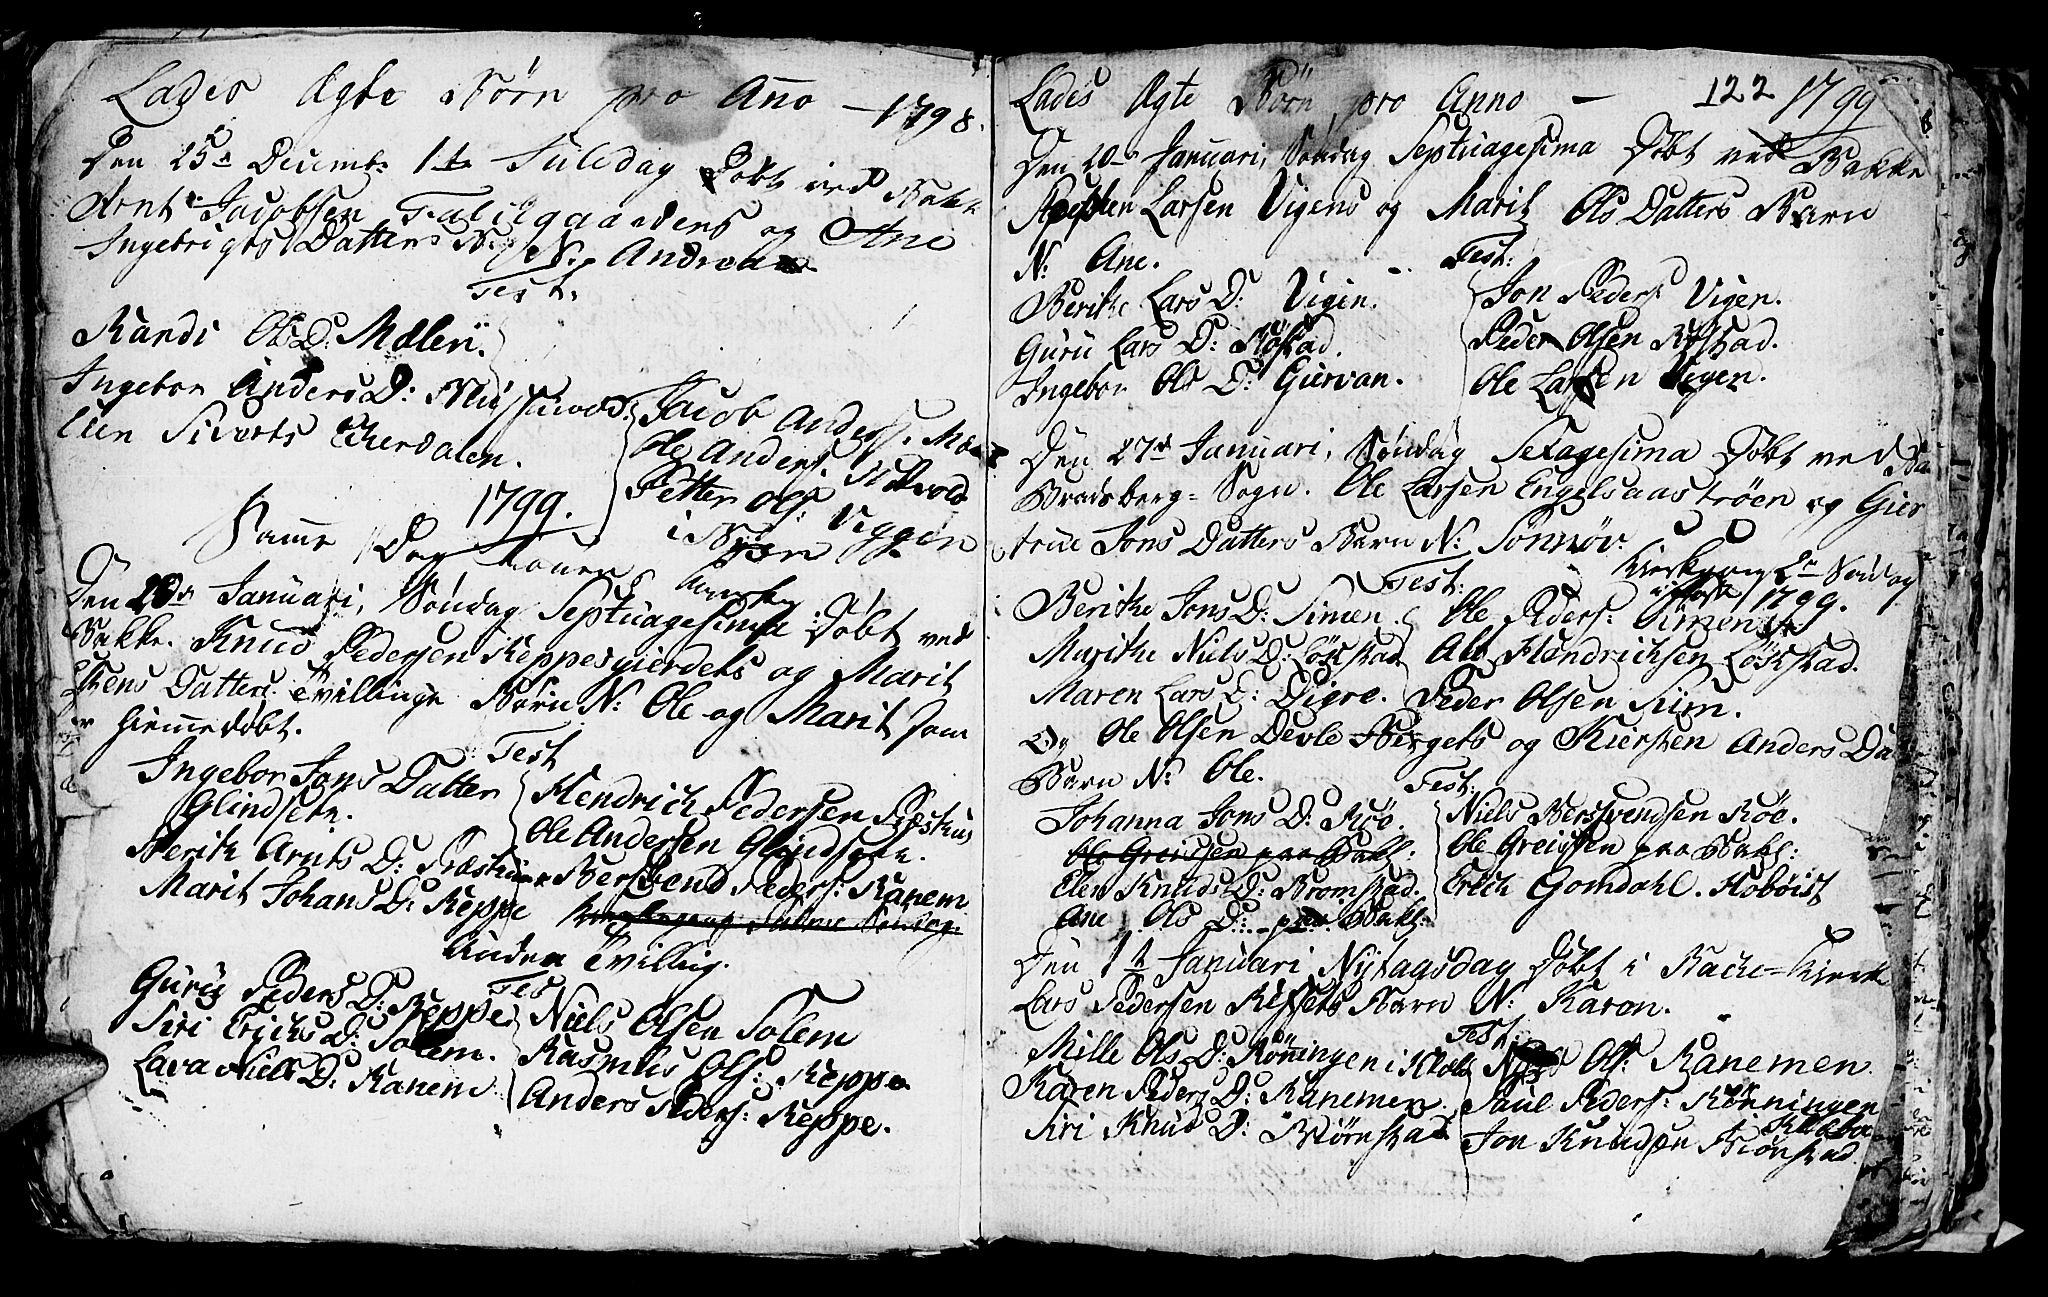 Lades Ægte Börn pro Año — 1798.
Den 25de Decembr 1te Juledag Döbt ved Bakke
Arnt Jacobsen Falilgaardens og Ane
Ingebrigts Datters B: N: Andreas
Test:
Randi Ols D: Mælen.
Ingebor Anders D:
Elen Siverts Ekerdalen.
Jacob Anders:
Ole Anders:
Petter Ols: Viggen
1799.
Samme Dag
Den 20de Januari, Söndag Septuagesima Döbt ved
Bakke. Knud Pedersen Reppesgierdets og Marit
Datters Tvillinge Börn N: Ole og Marit som
er hiemmedöbt.
Test
Ingebor Jons Datter
Glindsetr.
Berith Arnts D: Præsthuus
Marit Johans D: Reppe
Hendrich Pedersen Præsthuus
Ole Andersen Glindsetr.
Bersvend Peders: Ranem
Anden Tvilling.
Test
Guru Peders D: Reppe
Siri Erichs D: Solem.
Lava Niels D: Ranem
Niels Olsen Solem
Rasmus Ols: Reppe
Anders Peders: Reppe.
Lades Ægte Börn, pro Anno — 122 1799
Den 20de Januari, Söndag Septuagesima Döbt ved Bakke
Steffen Larsen Vigens og Marit Ols Datters Barn
N: Ane.
Test:
Berithe Lars D: Vigen.
Guru Lars D: Röstad.
Ingebor Ols D: Giervan.
Jon Peders: Vigen.
Peder Olsen Röstad.
Ole Larsen Vigen.
Den 27de Januari, Söndag Sexagesima Döbt ved Ba
Bradsberg-Sogn. Ole Larsen Engelsaaströen og Gier
true Jons Datters Barn N: Sönnöv.
Kirkegang 2den Söndag
i Faste 1799.
Test:
Berithe Jons D: Simen.
Marithe Niels D: Löskstad
Maren Lars D: Digre.
Ole Peders: Simen
Alt Hendrichsen Löskstad.
Peder Olsen Siim.
Og Ole Olsen Devle Birgets og Kiersten Anders Da
Barn N: Ole.
Test:
Johanna Jons D: Röe.
Ole Greissen paa Bakl:
Elen Knuds D: Bromstad.
Ane Ols D: paa Bakl:
Niels Bersvendsen Röe.
Ole Greissen paa Bakl:
Erich Gomdahl. Hoboist
Den 1te Januari Nytaarsdag Döbt i Bache-Kirke
Lars Pedersen Ressets Barn N: Karon.
Test
Mille Ols D: Rönningen i Klæbo
Karen Peders D: Ranemen
Siri Knud D: Biörnstad
Ols: Ranemen
Paul Peders: Rönningen
Klæboe
Jon Knudsen Biörnstad